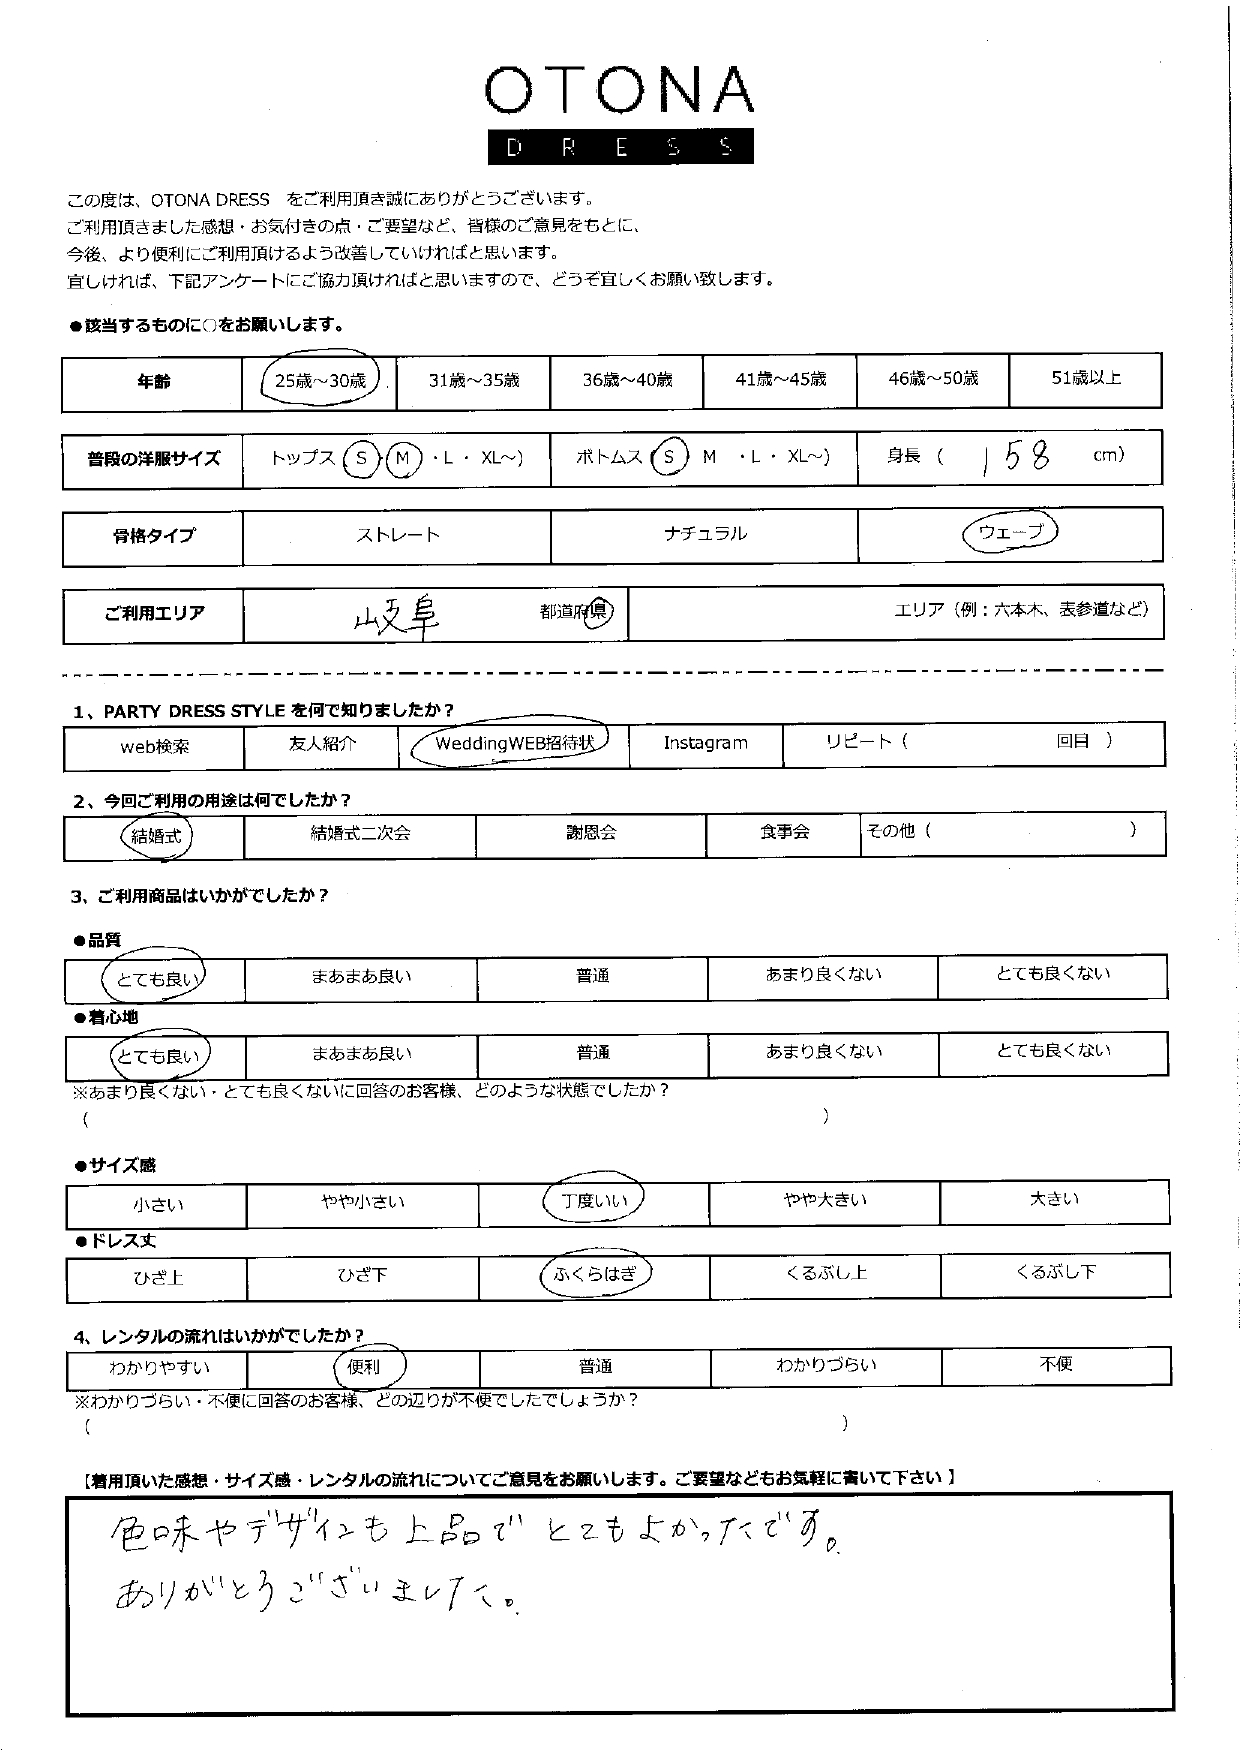 OTONA
DRESS
この度は、OTONA DRESS をご利用頂き誠にありがとうございます。
ご利用頂きました感想・お気付きの点・ご要望など、皆様のご意見をもとに、
今後、より便利にご利用頂けるよう改善していければと思います。
宜しければ、下記アンケートにご協力頂ければと思いますので、どうぞ宜しくお願い致します。
●該当するものに○をお願いします。
年齢 25歳～30歳 31歳～35歳 36歳～40歳 41歳～45歳 46歳～50歳 51歳以上
普段の洋服サイズ トップス(S・M ・L ・ XL～) ボトムス(S M ・L ・ XL～) 身長 ( 158 cm)
骨格タイプ ストレート ナチュラル ウェーブ
ご利用エリア 岐阜 都道府県 エリア（例：六本木、表参道など）
1、PARTY DRESS STYLE を何で知りましたか？
web検索 友人紹介 WeddingWEB招待状 Instagram リピート（ 回目 ）
2、今回ご利用の用途は何でしたか？
結婚式 結婚式二次会 謝恩会 食事会 その他（ ）
3、ご利用商品はいかがでしたか？
●品質
とても良い まあまあ良い 普通 あまり良くない とても良くない
●着心地
とても良い まあまあ良い 普通 あまり良くない とても良くない
※あまり良くない・とても良くないに回答のお客様、どのような状態でしたか？
（ ）
●サイズ感
小さい やや小さい 丁度いい やや大きい 大きい
●ドレス丈
ひざ上 ひざ下 ふくらはぎ くるぶし上 くるぶし下
4、レンタルの流れはいかがでしたか？
わかりやすい 便利 普通 わかりづらい 不便
※わかりづらい・不便に回答のお客様、どの辺りが不便でしたでしょうか？
（ ）
【着用頂いた感想・サイズ感・レンタルの流れについてご意見をお願いします。ご要望などもお気軽に書いて下さい】
色味やデザインも上品でとてもよかったです。
ありがとうございました。